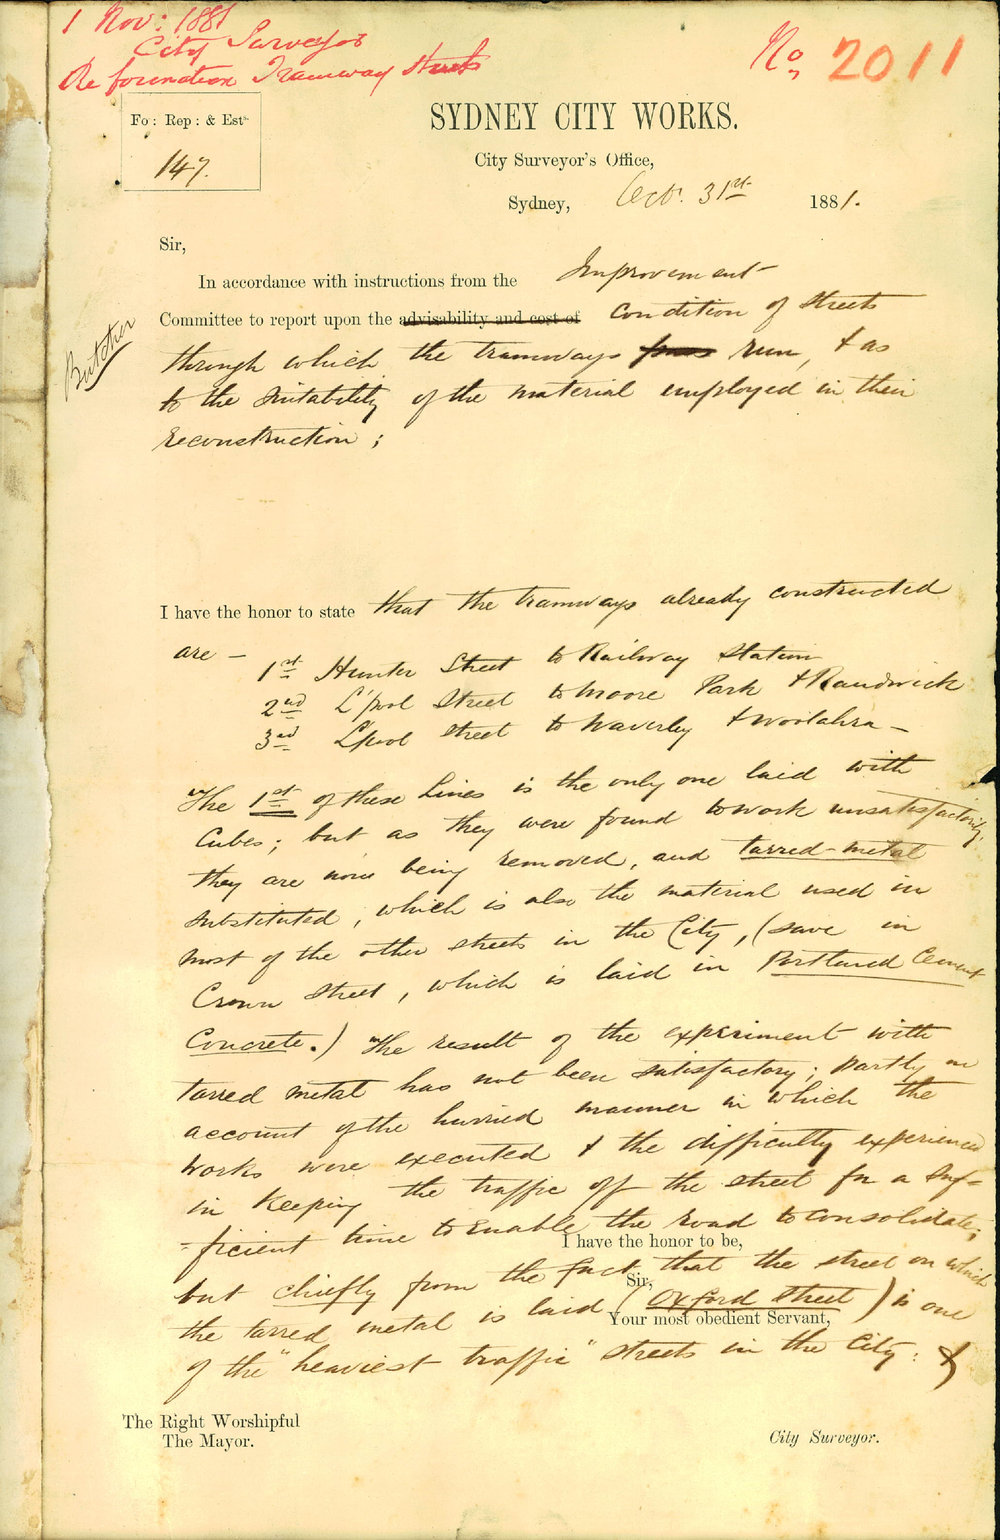 1 Nov: 1881
City Surveyor
Re formation Tramway Streets
No 2011
Fo: Rep: & Est
147.
SYDNEY CITY WORKS.
City Surveyor's Office,
Sydney, Oct. 31st 1881.
Sir,
In accordance with instructions from the Improvement
Committee to report upon the advisability and cost of Condition of Streets
through which the tramways pass run, & as
to the suitability of the material employed in their
reconstruction;
Butcher
I have the honor to state that the tramways already constructed
are –
1st Hunter Street to Railway Station
2nd L'pool Street to Moore Park & Randwick
3rd L'pool Street to Waverley & Woolahra –
The 1st of these Lines is the only one laid with
Cubes; but as they were found to work unsatisfactorily,
they are now being removed, and tarred-metal
substituted, which is also the material used in
most of the other streets in the City, (save in
Crown Street, which is laid in Portland Cement
Concrete.) The result of the experiment with
tarred metal has not been satisfactory; partly on
account of the hurried manner in which the
works were executed & the difficulty experienced
in keeping the traffic off the street for a suf-
-ficient time to enable the road to consolidate;
I have the honor to be,
but chiefly from the fact that the street on which
Sir,
the tarred metal is laid (Oxford Street) is one
Your most obedient Servant,
of the "heaviest traffic" streets in the City: &
The Right Worshipful
The Mayor.
City Surveyor.